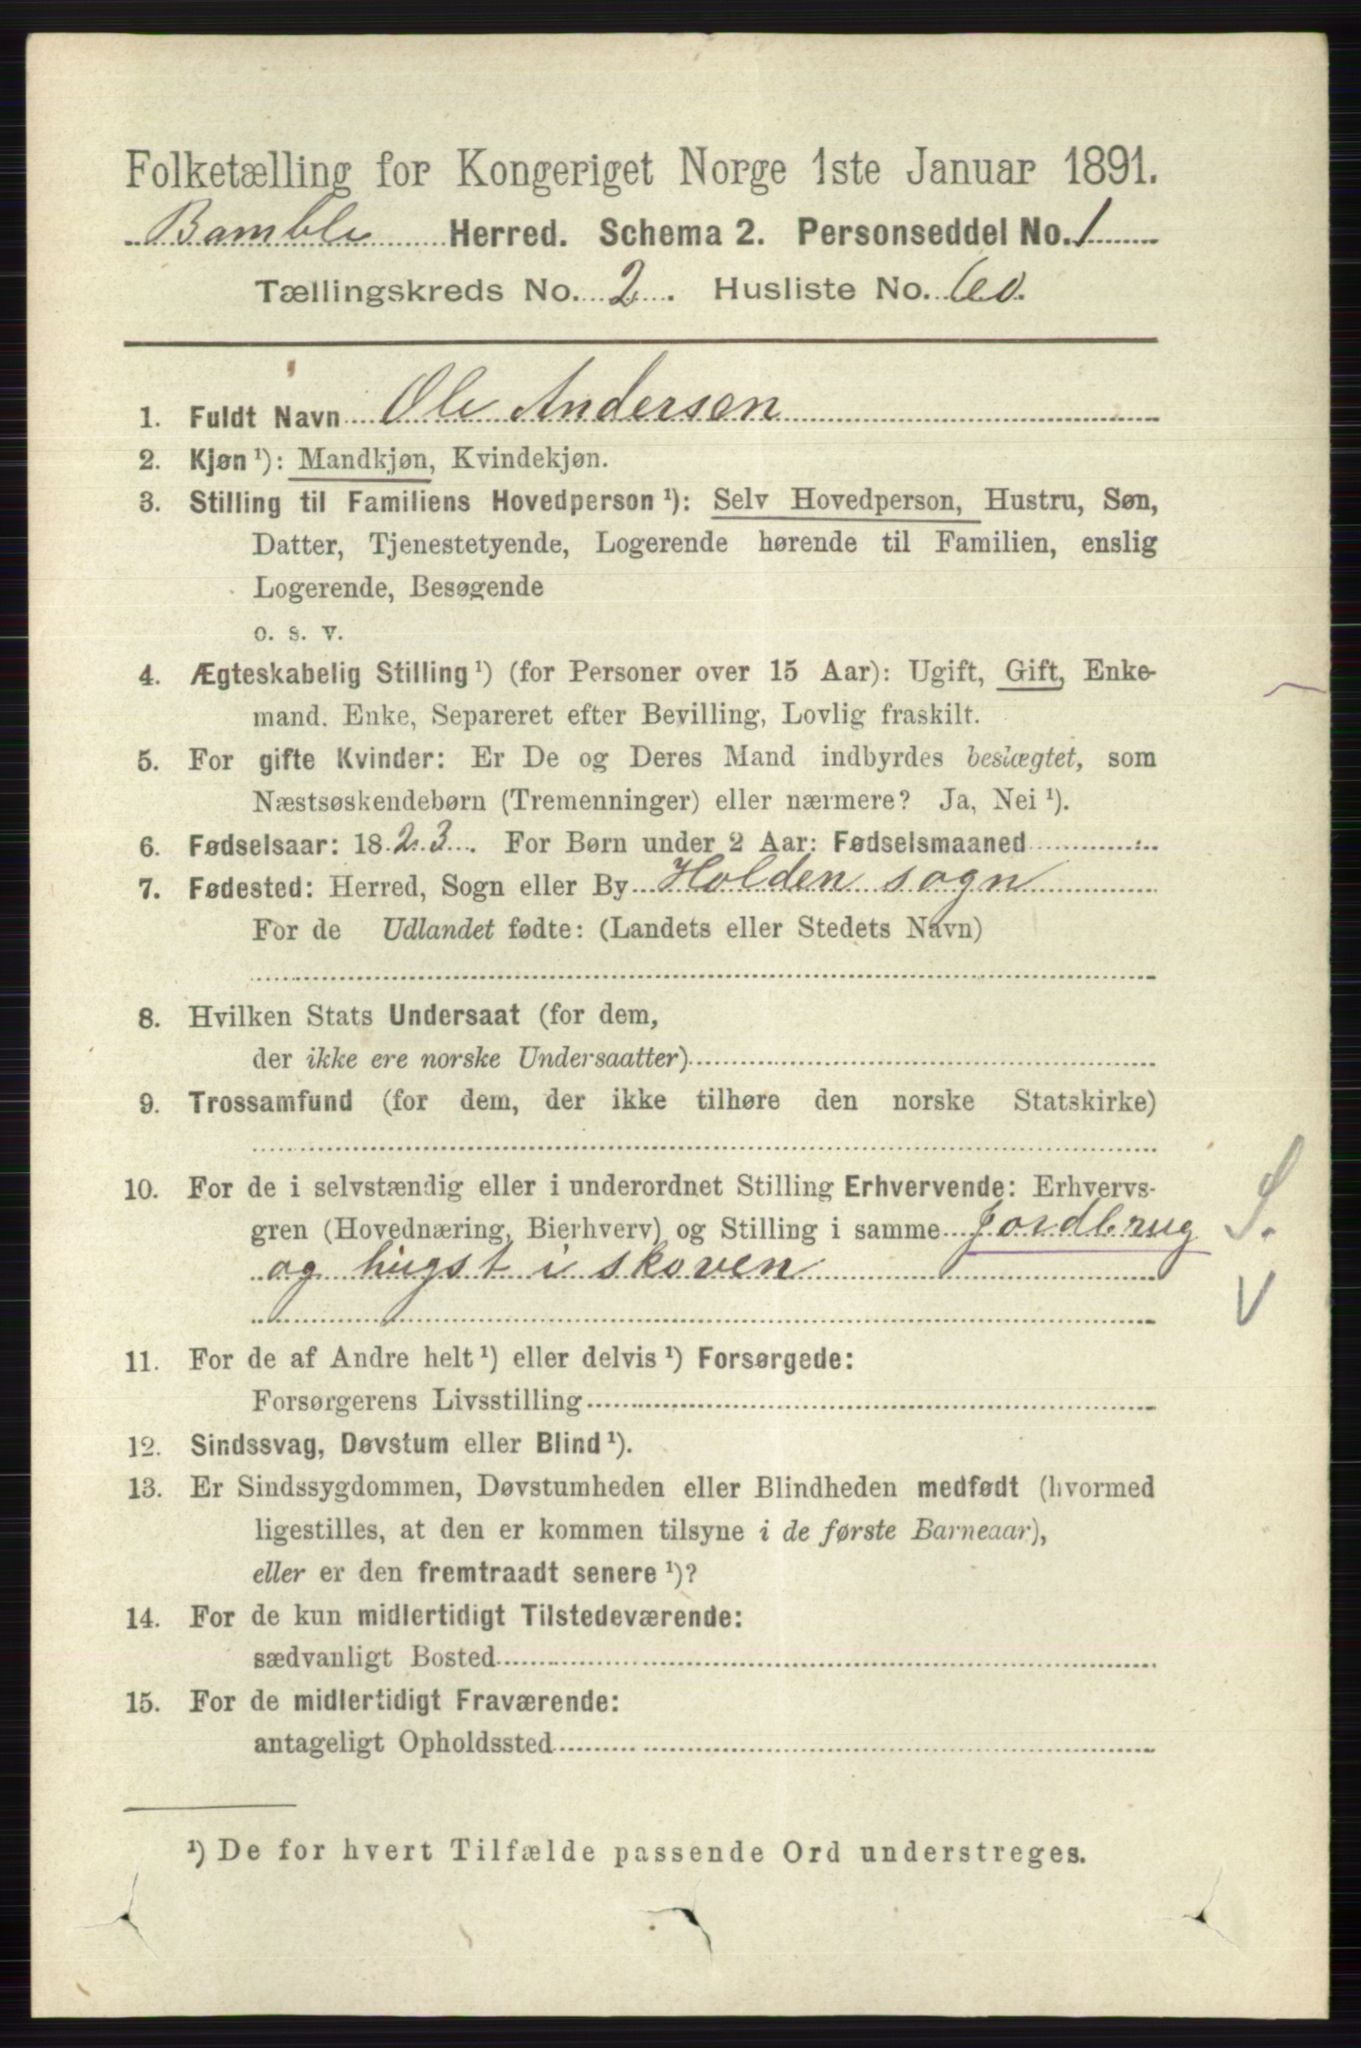 Folketælling for Kongeriget Norge 1ste Januar 1891.
Bamble Herred. Schema 2. Personseddel No. 1
Tællingskreds No. 2. Husliste No. 60.
1. Fuldt Navn Ole Andersen
2. Kjøn ¹): Mandkjøn, Kvindekjøn.
3. Stilling til Familiens Hovedperson ¹): Selv Hovedperson, Hustru, Søn,
Datter, Tjenestetyende, Logerende hørende til Familien, enslig
Logerende, Besøgende
o. s. v.
4. Ægteskabelig Stilling ¹) (for Personer over 15 Aar): Ugift, Gift, Enke-
mand. Enke, Separeret efter Bevilling, Lovlig fraskilt.
5. For gifte Kvinder: Er De og Deres Mand indbyrdes beslægtet, som
Næstsøskendebørn (Tremenninger) eller nærmere? Ja, Nei ¹).
6. Fødselsaar: 1823. For Børn under 2 Aar: Fødselsmaaned
7. Fødested: Herred, Sogn eller By Holden sogn
For de Udlandet fødte: (Landets eller Stedets Navn)
8. Hvilken Stats Undersaat (for dem,
der ikke ere norske Undersaatter)
9. Trossamfund (for dem, der ikke tilhøre den norske Statskirke)
10. For de i selvstændig eller i underordnet Stilling Erhvervende: Erhvervs-
gren (Hovednæring, Bierhverv) og Stilling i samme Jordbrug S.
og hugst i skoven V
11. For de af Andre helt ¹) eller delvis ¹) Forsørgede:
Forsørgerens Livsstilling
12. Sindssvag, Døvstum eller Blind ¹).
13. Er Sindssygdommen, Døvstumheden eller Blindheden medfødt (hvormed
ligestilles, at den er kommen tilsyne i de første Barneaar),
eller er den fremtraadt senere ¹)?
14. For de kun midlertidigt Tilstedeværende:
sædvanligt Bosted
15. For de midlertidigt Fraværende:
antageligt Opholdssted
¹) De for hvert Tilfælde passende Ord understreges.